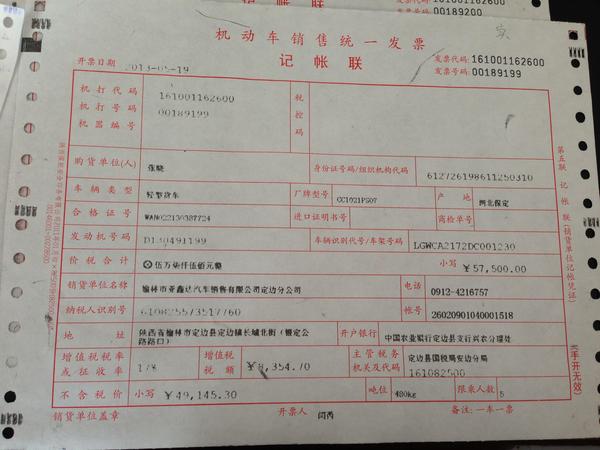 00189200
机动车销售统一发票
记帐联
发票代码:161001162600
发票号码:00189199
开票日期 2013-05-19
机打代码 161001162600
机打号码 00189199
机器编号
税控码
购货单位(人) 张晓 身份证号码/组织机构代码 612726198611250310
车辆类型 轻型货车 厂牌型号 CC1021PS07 产地 河北保定
合格证号 进口证明书号 商检单号
发动机号码 车辆识别代号/车架号码 LGWCA2172DC001230
价税合计 ⊗伍万柒仟伍佰元整 小写 ¥57,500.00
销货单位名称 榆林市亚鑫达汽车销售有限公司定边分公司 电话 0912-4216757
纳税人识别号 账号 26020901040001518
地址 陕西省榆林市定边县定边镇长城北街(银定公路路口) 开户银行 中国农业银行定边县支行兴农分理处
增值税税率或征收率 17% 增值税税额 ¥8,354.70 主管税务机关及代码 定边县国税局安边分局
161082500
不含税价 小写 ¥49,145.30 吨位 480kg 限乘人数 5
销货单位盖章 开票人 闫芮 备注:一车一票
第五联 记帐联(销货单位记帐凭证)
(手开无效)